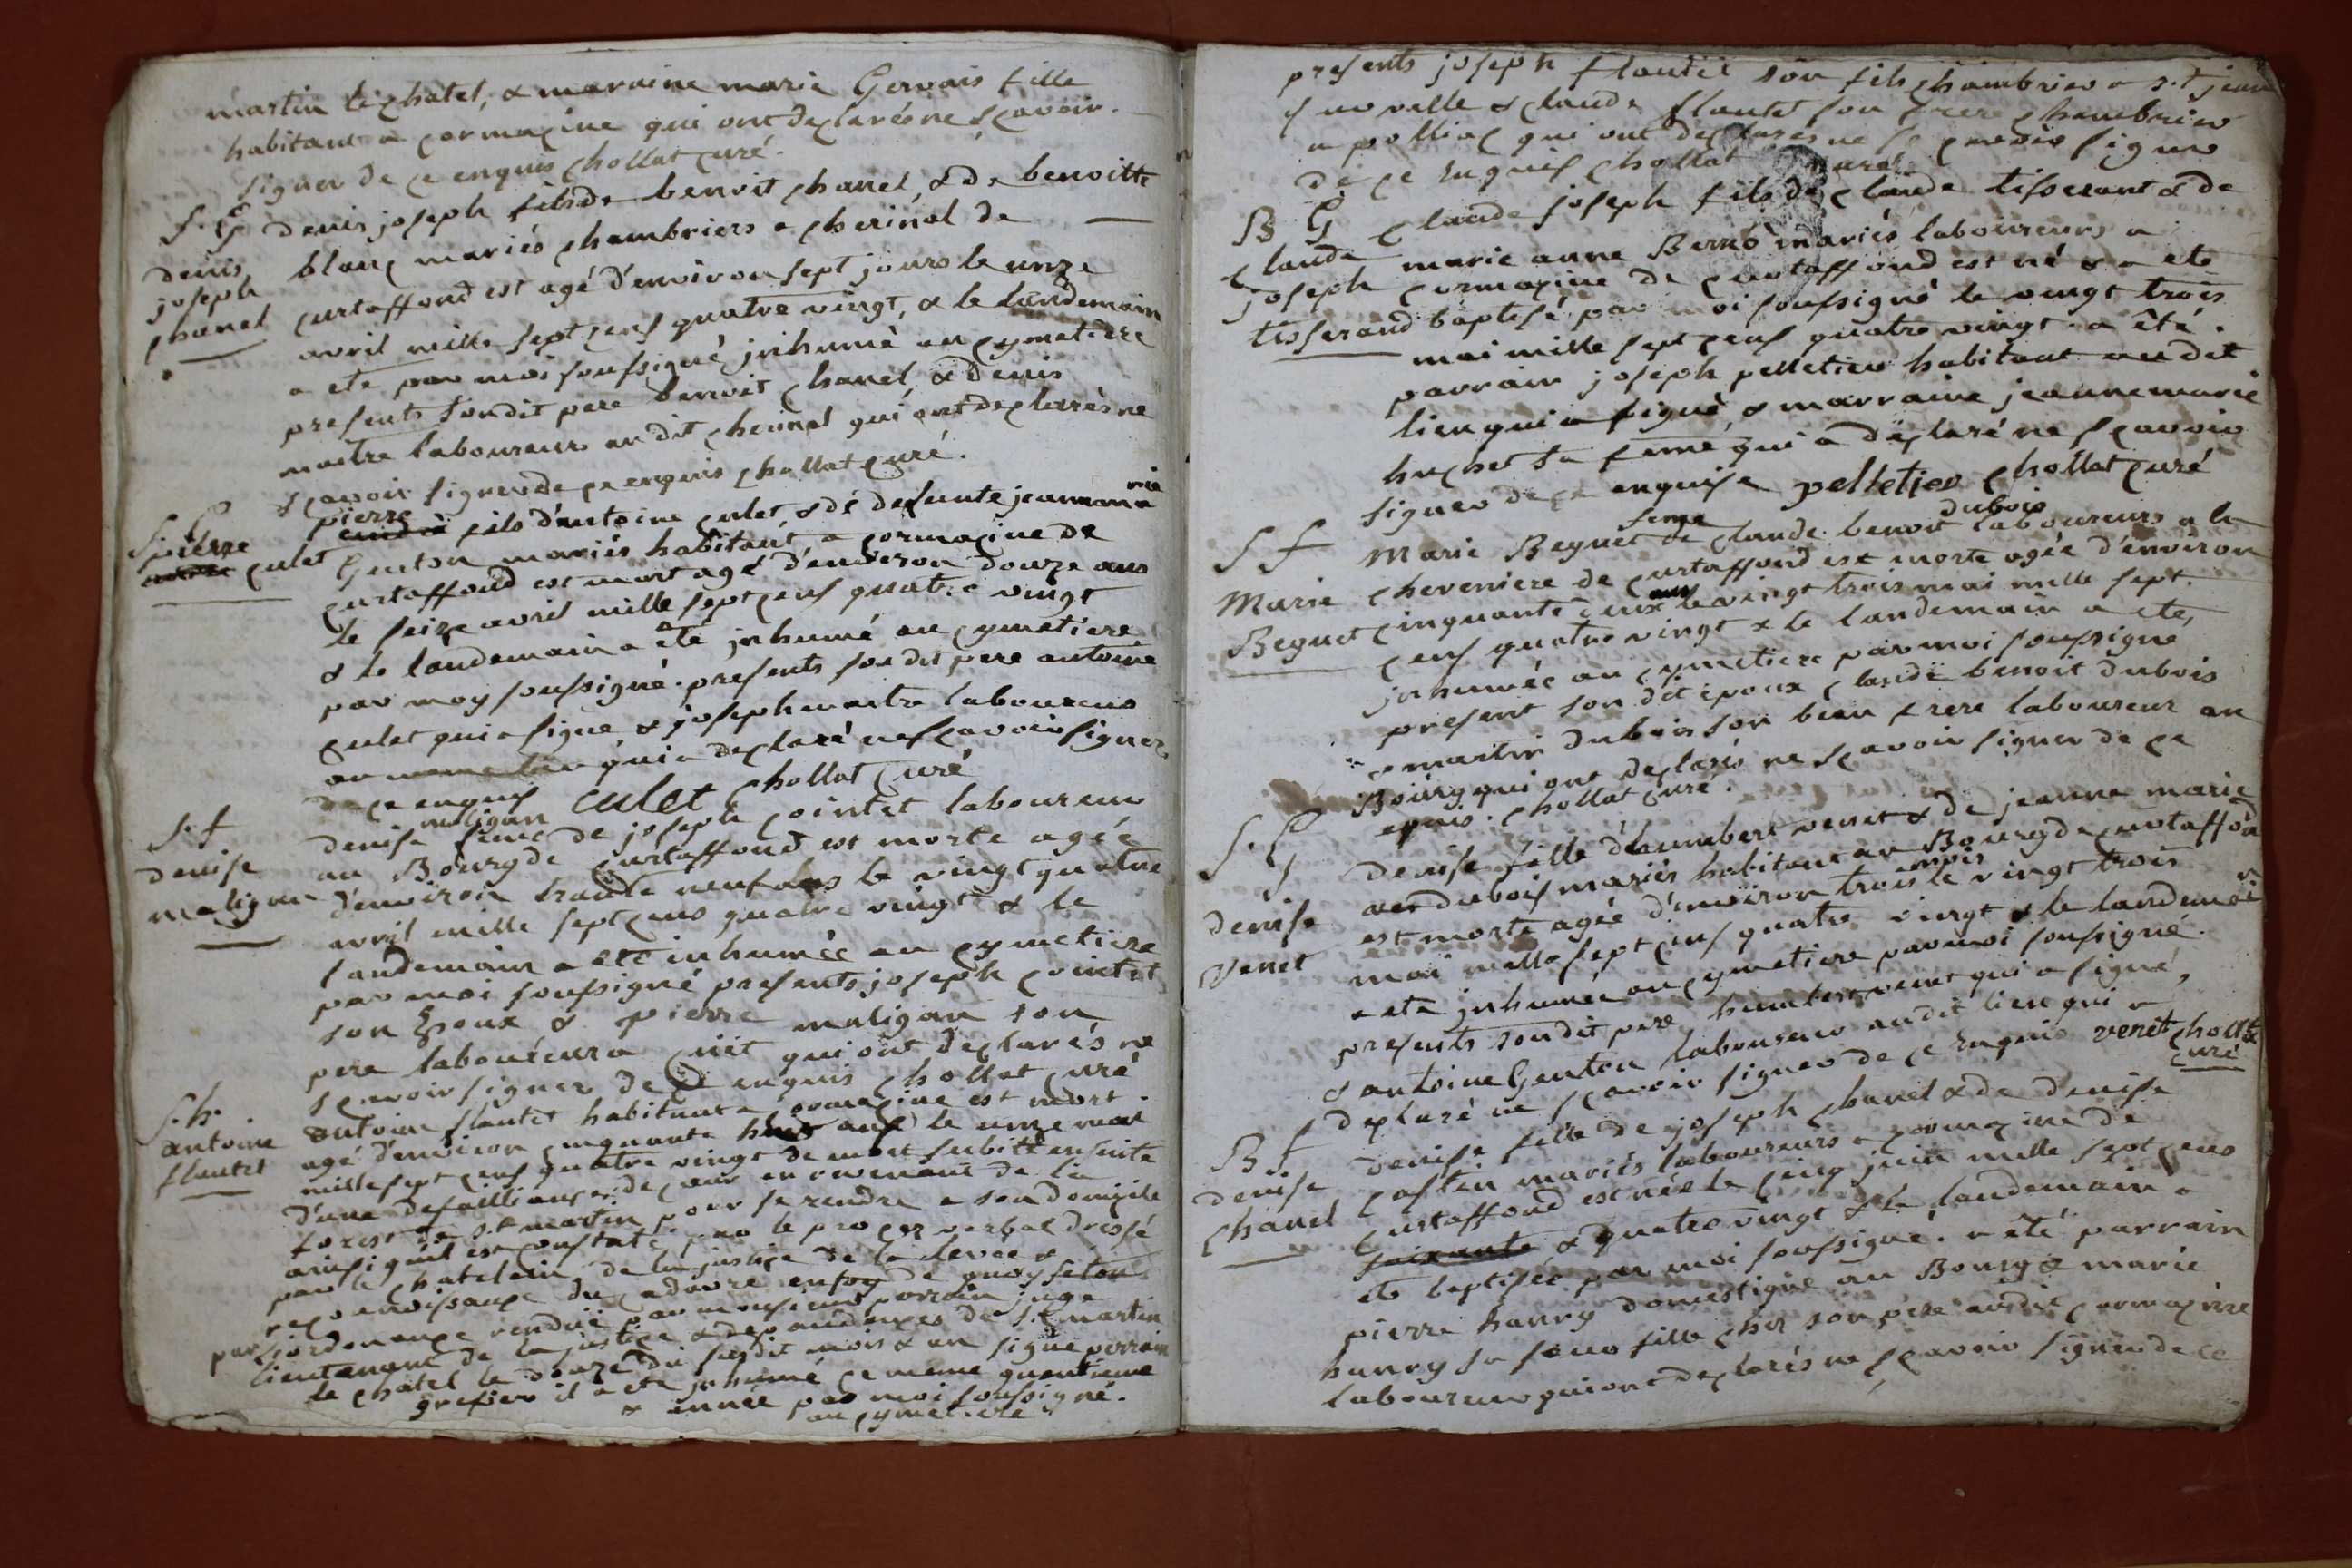 martin le chatel, & maraine marie Gervais fille
habitant a cormazine qui ont declarés ne scavoir
signer de ce enquis chollat curé.
S. G denis joseph fils de benoit chanel, & de benoitte
denis joseph chanel
blanc mariés chambriers a cherinal de
curtaffond est agé d'environ sept jours le unze
avril mille sept cens quatre vingt, & le landemain
a ete par moi soussigné inhumé au cymetiere
presents sondit pere benoit chanel, & denis
maitre laboureurs audit cherinal qui ont declarés ne
scavoir signer de ce enquis chollat curé.
S. G
pierre culet
pierre fils d'antoine culet & de defunte jeanne marie
Genton mariés habitant a cormazine de
curtaffond est mort agé d'environ douze ans
le seize avril mille sept cens quatre vingt
& le landemain a été inhumé au cymetiere
par moy soussigné. presents son dit pere antoine
culet qui a signé & joseph maitre laboureur
au meme lieu qui a declaré ne scavoir signer
de ce enquis culet chollat curé
S. f
denise maligan
denise maligan feme de joseph cointet laboureur
au Bourg de curtaffond est morte agée
d'environ trante neuf ans le vingt quatre
avril mille sept cens quatre vingt & le
landemain a eté inhumée au cymetiere
par moi soussigné presents joseph cointet
son Epoux & pierre maligan son
pere laboureur a cuit qui ont declarés ne
scavoir signer de ce enquis chollat curé
S. h.
antoine flautet
antoine flautet habitant a cormazine est mort
agé d'environ cinquante huit ans le unze mai
mille sept cens quatre vingt de mort subitte ensuite
d'une defailliance de cœur en revenant de la
forest de st martin pour se rendre a son domicile
ainsi qu'il est constaté par le procez verbal dressé
par le chatelain de la justice de la levée &
reconnoissance du cadavre en foy de quoy selon
par l'ordonnance rendüe par monsieur perroin juge
lieutenant de la justice & dependences de st martin
le chatel le douze du susdit mois & an signé perroin
grefier il a ete inhumé ce meme quantieme
& année par moi soussigné.
au cymetiere
presents joseph flautet son fils chambrier a st jean
sur relle & claude flautet son frere chambrier
a polliac qui ont declarés ne scavoir signer
de ce enquis chollat curé
B G
claude joseph tisserand
claude joseph fils de claude tisserant & de
marie anne Berno mariés laboureurs a
cormazine de curtaffond est né & a ete
baptisé par moi soussigné le vingt trois
mai mille sept cens quatre vingt. a été.
parrain joseph pelletier habitant audit
lieu qui a signé & marraine jeanne marie
huchet sa femme qui a declaré ne scavoir
signer de ce enquise pelletier chollat curé
S f
Marie Beguet
Marie Beguet feme de claude benoit dubois laboureurs a la
cheveniere de curtaffond est morte agée d'environ
cinquante deux ans le vingt trois mai mille sept
cens quatre vingt & le landemain a eté,
inhumée au cymetiere par moi soussigné
present son dit epoux claude benoit dubois
& martin dubois son beau frere laboureur au
Bourg qui ont declarés ne scavoir signer de ce
enquis. chollat curé.
S. G
denise Venet
denise fille d'humbert venet & de jeanne marie
dubois mariés habitant au Bourg de curtaffond
est morte agée d'environ trois mois le vingt trois
mai mille sept cens quatre vingt & le landemain
a ete inhumée au cymetiere par moi soussigné.
presents son dit pere humbert venet qui a signé,
& antoine Genton laboureur audit lieu qui a
declaré ne scavoir signer de ce enquis venet chollat
curé
B f
denise chanel
denise fille de joseph chanel & de denise
castin mariés laboureurs a cormazine de
curtaffond est née le cinq juin mille sept cens
soixante & quatre vingt & le landemain a
ete baptisée par moi soussigné. a été parrain
pierre hanry domestique au Bourg & marie
hanry sa seur fille chez son pere audit cormazine
laboureur qui ont declarés ne scavoir signer de ce